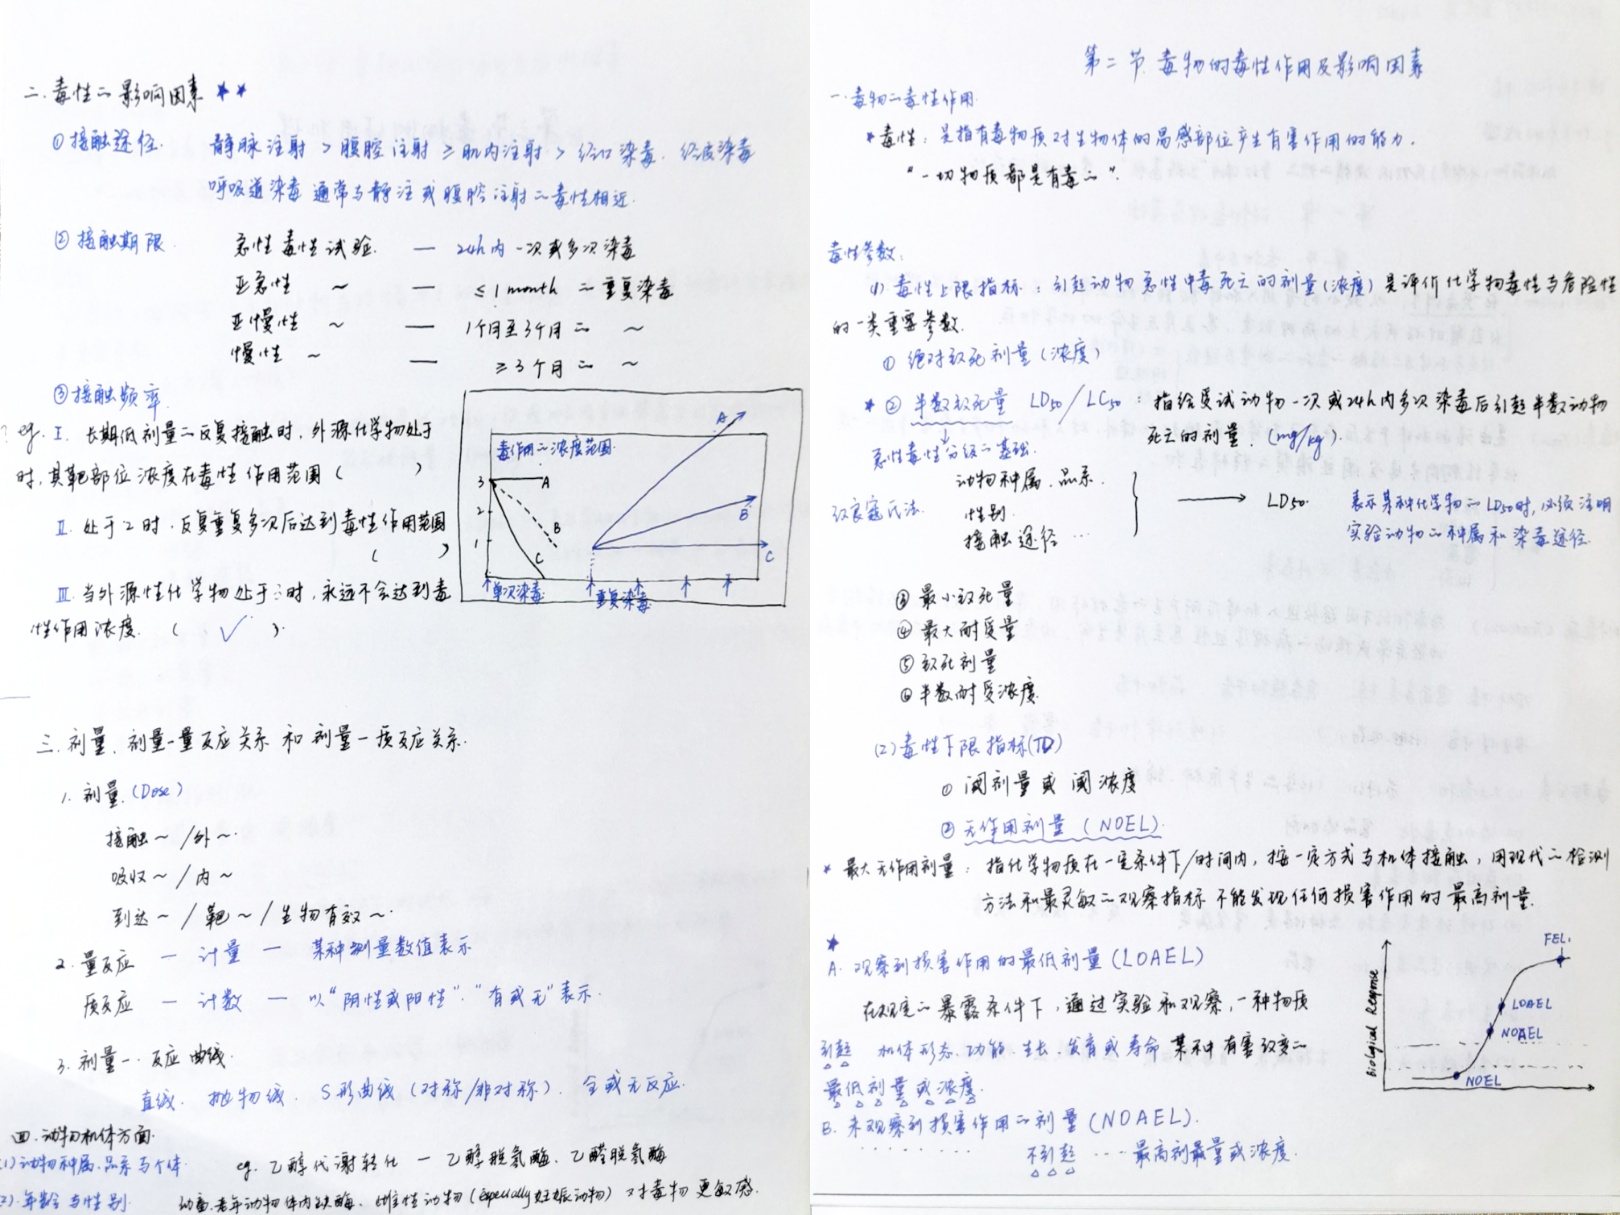 二.毒性二影响因素 ★ ★
①接触途径. 静脉注射 > 腹腔注射 ≥ 肌内注射 > 经口染毒. 经皮染毒
呼吸道染毒 通常与静注或腹腔注射二毒性相近.
②接触期限 急性毒性试验. — 24h内一次或多次染毒
亚急性 ~ — ≤1 month 二重复染毒
亚慢性 ~ — 1个月至3个月二 ~
慢性 ~ — ≥3个月二 ~
③接触频率.
eg. Ⅰ. 长期低剂量二反复接触时,外源化学物处于
时,其靶部位浓度在毒性作用范围 ( )
Ⅱ. 处于2时.反复重复多次后达到毒性作用范围
( )
Ⅲ.当外源性化学物处于 时,永远不会达到毒
性作用浓度. ( ✓ ).
毒作用二浓度范围.
A
3 A
2 B B
1 C C
单次染毒 重复染毒
三.剂量、剂量一量反应关系 和 剂量一质反应关系.
1. 剂量.(Dose)
接触~/外~.
吸收~/内~
到达~/靶~/生物有效~.
2.量反应 — 计量 — 某种测量数值表示
质反应 — 计数 — 以“阴性或阳性”.“有或无”表示.
3.剂量一.反应曲线.
直线. 抛物线. S形曲线(对称/非对称). 全或无反应.
四.动物机体方面.
(1)动物种属.品系与个体 eg. 乙醇代谢转化 — 乙醇脱氢酶.乙醛脱氢酶
(2).年龄与性别. 幼畜.老年动物体内缺酶. 雌性动物(especially妊娠动物) 对毒物更敏感.
第二节.毒物的毒性作用及影响因素
一.毒物二毒性作用.
★毒性:是指有毒物质对生物体的易感部位产生有害作用的能力.
“一切物质都是有毒二”.
毒性参数:
(1) 毒性上限指标:引起动物急性中毒死亡的剂量(浓度)是评价化学物毒性与危险性
的一类重要参数.
① 绝对致死剂量(浓度)
★ ② 半数致死量 LD50/LC50 : 指给受试动物一次或24h内多次染毒后引起半数动物
死亡的剂量. (mg/kg).
急性毒性分级二基础.
动物种属.品系.
改良寇氏法. 性别. → LD50. 表示某种化学物二LD50时,必须注明
接触途径… 实验动物二种属和染毒途径.
③最小致死量
④最大耐受量
⑤致死剂量
⑥半数耐受浓度.
(2)毒性下限指标(TD)
① 阈剂量或阈浓度
②无作用剂量 (NOEL).
★ 最大无作用剂量: 指化学物质在一定条件下/时间内,按一定方式与机体接触,用现代二检测
方法和最灵敏二观察指标 不能发现任何损害作用的最高剂量.
★
A. 观察到损害作用的最低剂量(LOAEL)
在规定二暴露条件下,通过实验和观察,一种物质
引起 机体形态.功能.生长.发育或寿命 某种有害改变二
最低剂量或浓度.
B. 未观察到损害作用二剂量(NOAEL).
不引起 … 最高剂量或浓度.
Biological Response
FEL.
LOAEL
NOAEL
NOEL